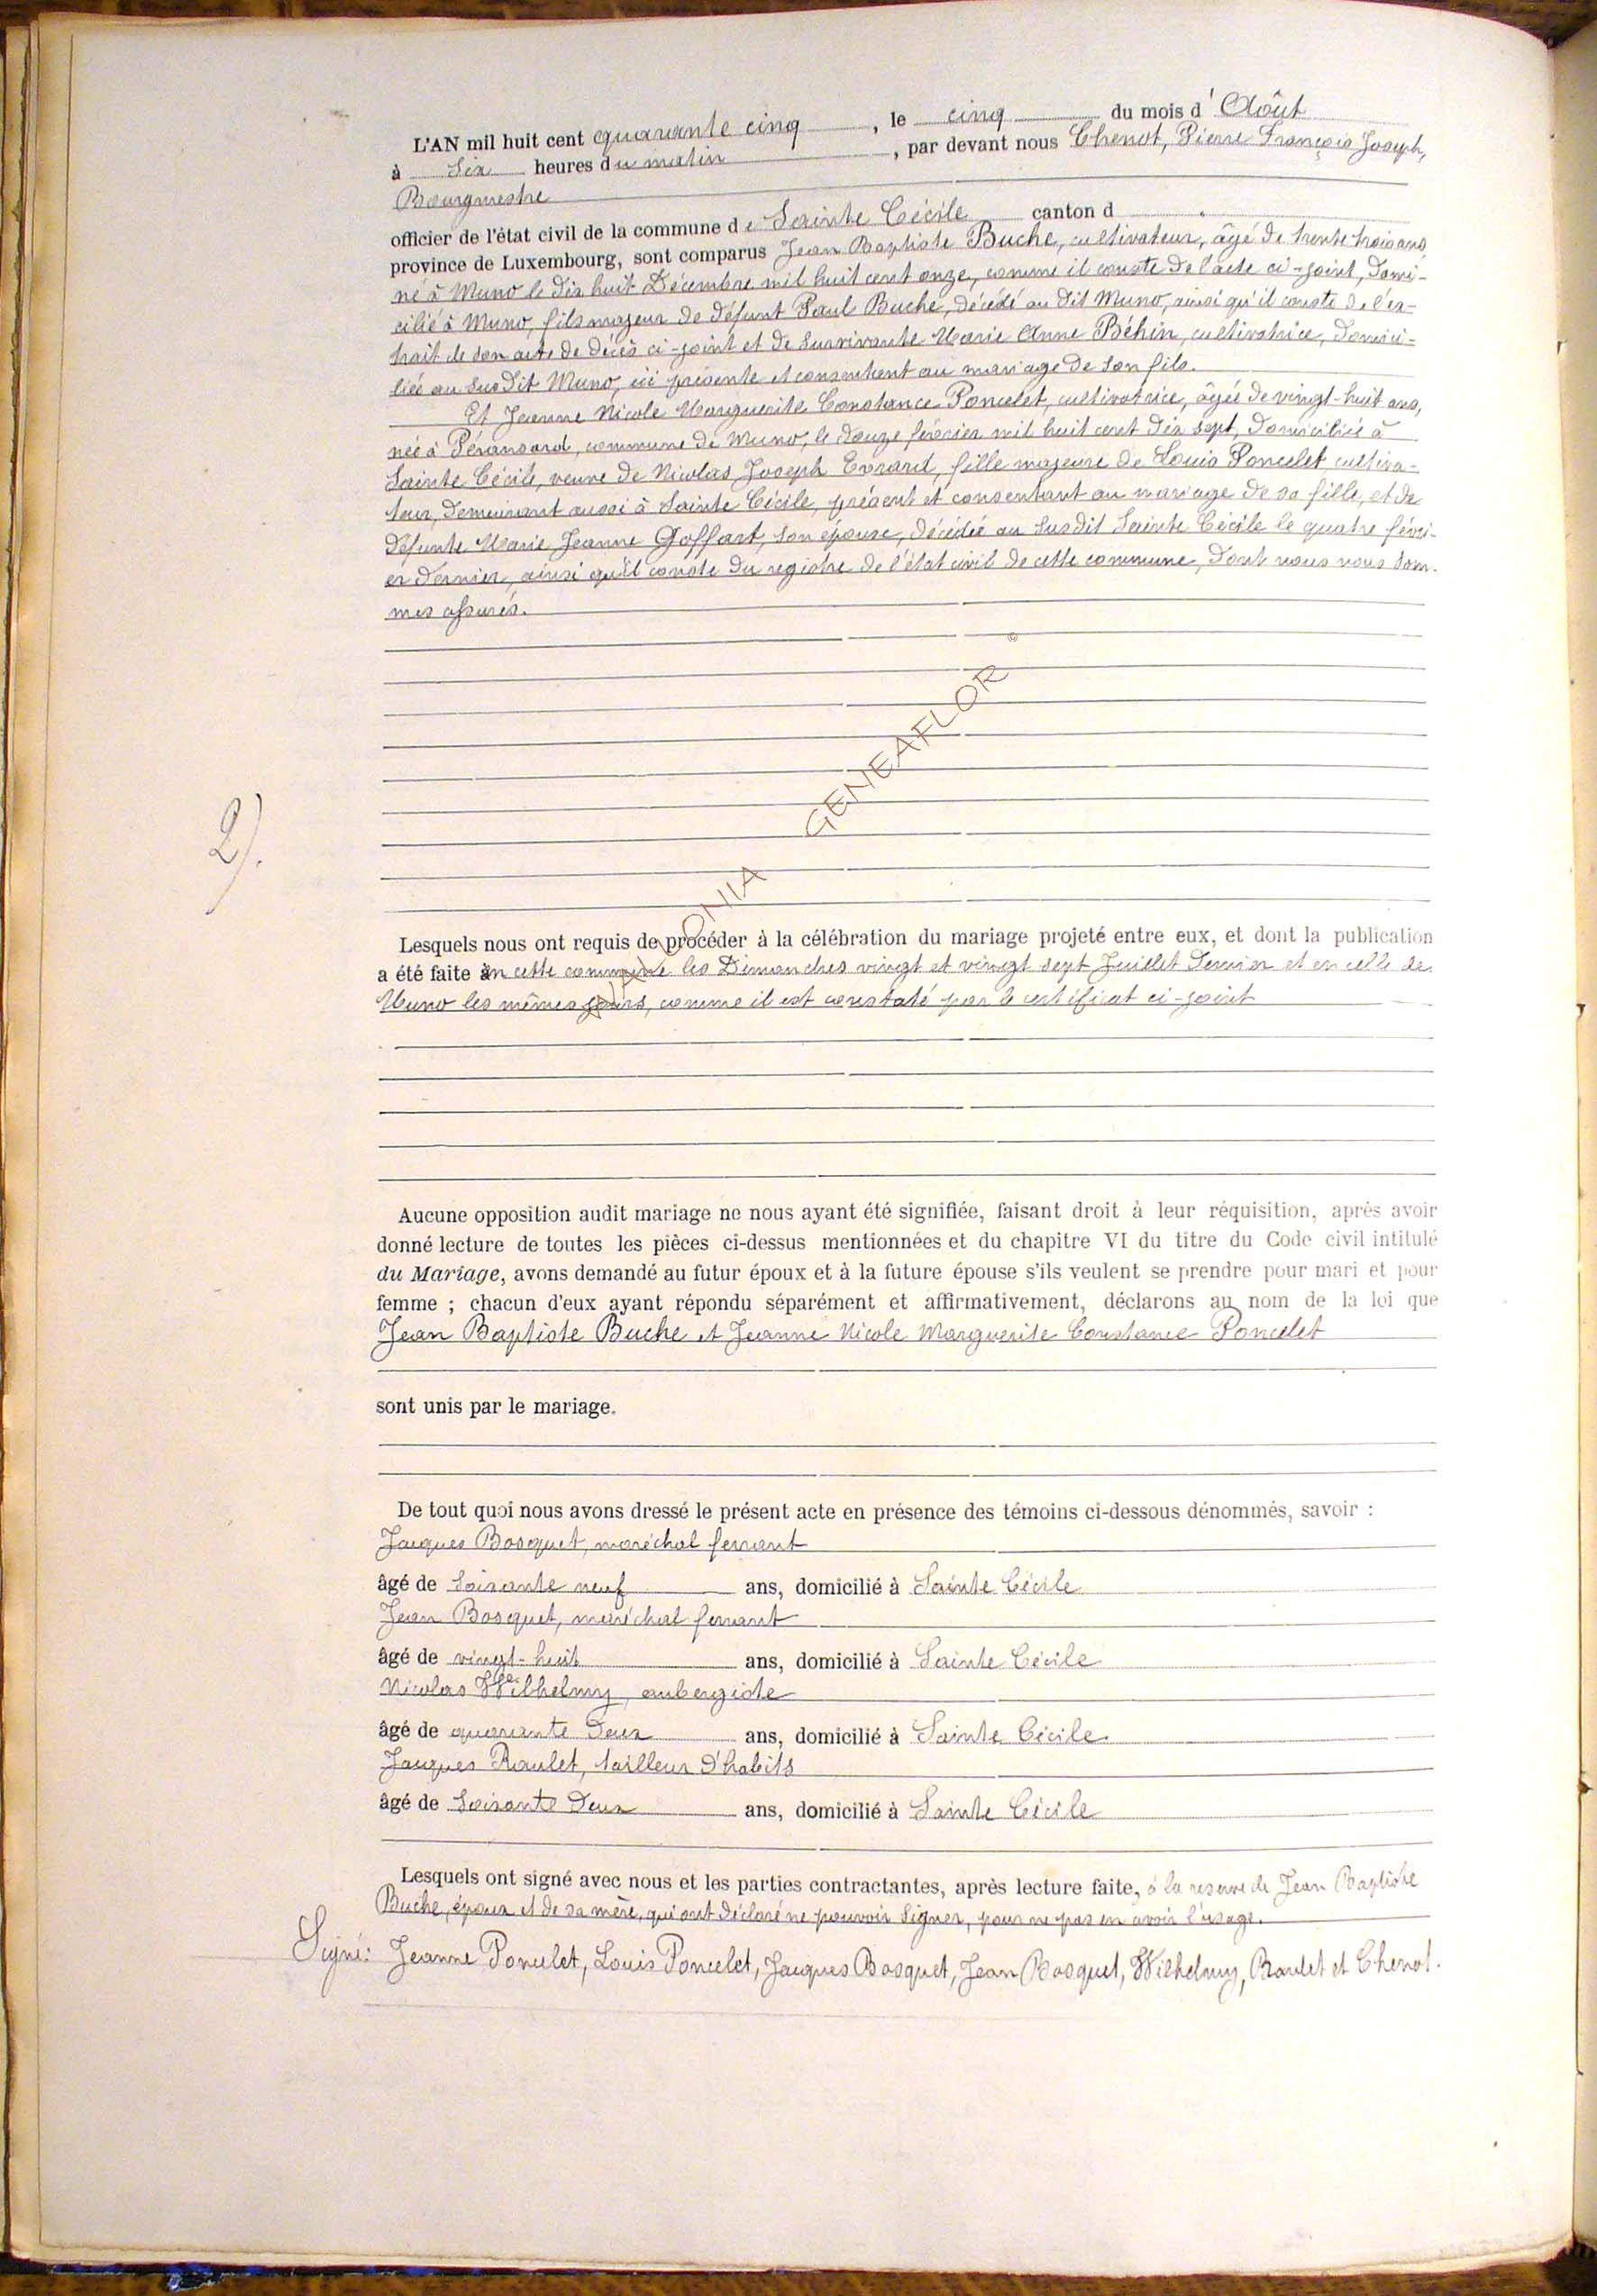 L'AN mil huit cent quarante cinq, le cinq du mois d' Août
à Six heures du matin, par devant nous Chenot, Pierre François Joseph,
Bourgmestre
officier de l'état civil de la commune de Sainte Cécile canton d
province de Luxembourg, sont comparus Jean Baptiste Buche, cultivateur, âgé de trente trois ans,
né à Muno le dix huit Décembre mil huit cent onze, comme il conste de l'acte ci-joint, domi-
cilié à Muno, fils majeur de défunt Paul Buche, décédé au dit Muno, ainsi qu'il conste de l'ex-
trait de son acte de décès ci-joint et de survivante Marie Anne Béhin, cultivatrice, domici-
liée au susdit Muno, ici présente et consentent au mariage de son fils.
Et Jeanne Nicole Marguerite Constance Poncelet, cultivatrice, âgée de vingt-huit ans,
née à Péransard, commune de Muno, le douze février mil huit cent dix sept, domiciliée à
Sainte Cécile, veuve de Nicolas Joseph Evrard, fille majeure de Louis Poncelet cultiva-
teur, demeurant aussi à Sainte Cécile, présent et consentant au mariage de sa fille, et de
défunte Marie Jeanne Goffart, son épouse, décédée au susdit Sainte Cécile le quatre févri-
er dernier, ainsi qu'il conste du registre de l'état civil de cette commune, dont nous nous som-
mes assurés.
©
GENEAFLOR
2).
Lesquels nous ont requis de procéder à la célébration du mariage projeté entre eux, et dont la publication
a été faite en cette commune les Dimanches vingt et vingt sept Juillet dernier et en celle de
Muno les mêmes jours, comme il est constaté par le certificat ci-joint
Aucune opposition audit mariage ne nous ayant été signifiée, faisant droit à leur réquisition, après avoir
donné lecture de toutes les pièces ci-dessus mentionnées et du chapitre VI du titre du Code civil intitulé
du Mariage, avons demandé au futur époux et à la future épouse s'ils veulent se prendre pour mari et pour
femme ; chacun d'eux ayant répondu séparément et affirmativement, déclarons au nom de la loi que
Jean Baptiste Buche et Jeanne Nicole Marguerite Constance Poncelet
sont unis par le mariage.
De tout quoi nous avons dressé le présent acte en présence des témoins ci-dessous dénommés, savoir :
Jacques Bosquet, maréchal ferrant
âgé de soixante neuf ans, domicilié à Sainte Cécile
Jean Bosquet, maréchal ferrant
âgé de vingt-huit ans, domicilié à Sainte Cécile
Nicolas Wilhelmy, aubergiste
âgé de quarante deux ans, domicilié à Sainte Cécile
Jacques Raulet, tailleur d'habits
âgé de soixante deux ans, domicilié à Sainte Cécile
Lesquels ont signé avec nous et les parties contractantes, après lecture faite, à la reserve de Jean Baptiste
Buche, époux et de sa mère, qui ont déclaré ne pouvoir signer, pour ne pas en avoir l'usage.
Signé: Jeanne Poncelet, Louis Poncelet, Jacques Bosquet, Jean Bosquet, Wilhelmy, Raulet et Chenot.